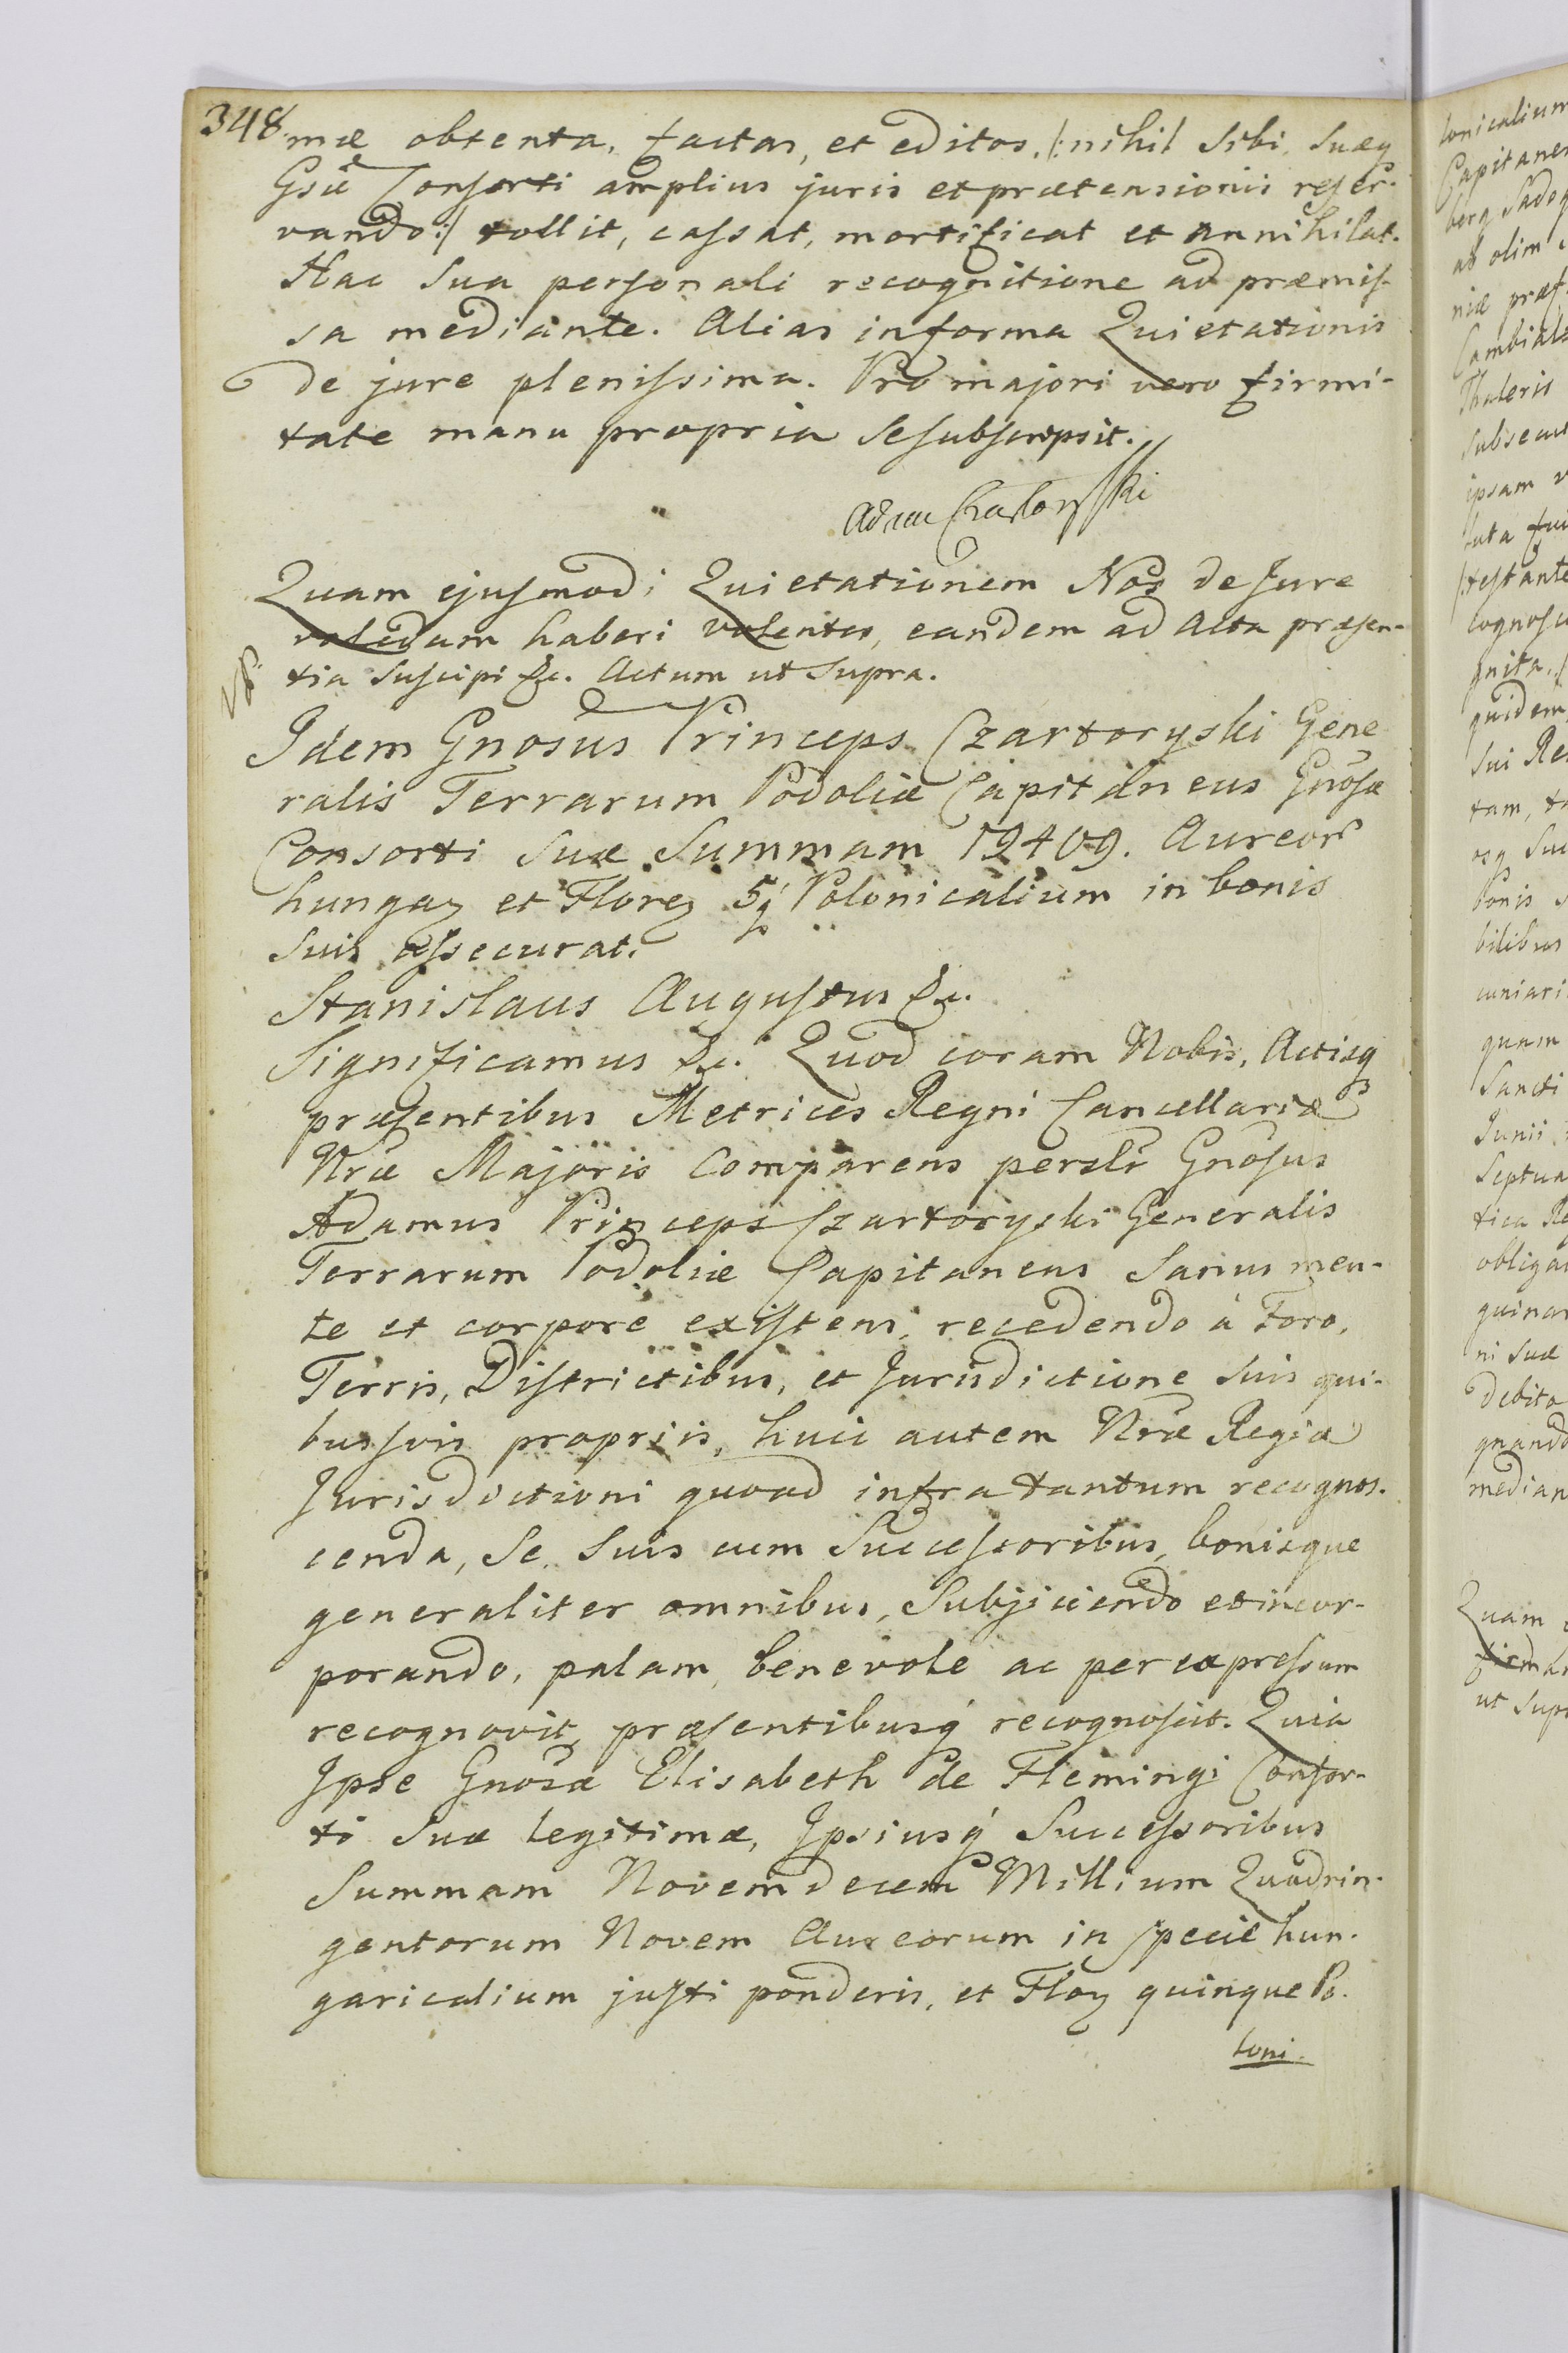 348.
mæ obtenta, factas, et editos, /: nihil Sibi, Suæq
Gsæ Consorti amplius juris et prætensionis reser-
vando :/ tollit, cassat, mortificat et annihilat.
Hac Sua personali recognitione ad præmis-
sa mediante. Alias in forma Quietationis
de jure plenissima. Pro majori vero firmi-
tate manu propria Se subscripsit.
Adam Czartoryski
Quam ejusmodi Quietationem Nos de Jure
validam haberi volentes, eandem ad Acta præsen-
tia Suscipi &c. Actum ut Supra.
Idem Gnosus Princeps Czartoryski Gene
ralis Terrarum Podoliæ Capitaneus Gnosæ
Consorti Suæ Summam 19409. Aureor
hungaz et Florez 5q Polonicalium in bonis
Suis assecurat.
Stanislaus Augustus &c.
Significamus &c. Quod coram Nobis, Actisq
præsentibus Metrices Regni Cancellariæ
Nræ Majoris Comparens perslr Gnosus
Adamus Princeps Czartoryski Generalis
Terrarum Podoliæ Capitaneus Sanus men-
te et corpore existens, recedendo à Foro,
Terris, Districtibus, et Jurisdictione Suis qui-
busvis propriis, huic autem Nræ Regiæ
Jurisdictioni quoad infra tantum recognos-
cenda, Se Suis cum Successoribus, bonisque
generaliter omnibus, Subjiciendo et incor-
porando, palam, benevole ac per expressum
recognovit, præsentibusq recognoscit. Quia
Ipse Gnosæ Elisabeth de Flemingi Consor-
ti Suæ legitimæ, Ipsiusq Successoribus
Summam Novemdecem Millium Quadrin-
gentorum Novem Aureorum in specie hun-
garicalium justi ponderis, et Floz quinque Po-
loni-
lonicalium
Capitane
ab olim
niæ præf
Thaleris
ipsam
testante
quidem
Sui Re
tam,
bonis
bilibus
quam
Sancti
Junii
Septua
obligat
ni Suæ
debito
median
Quam
ut Supr